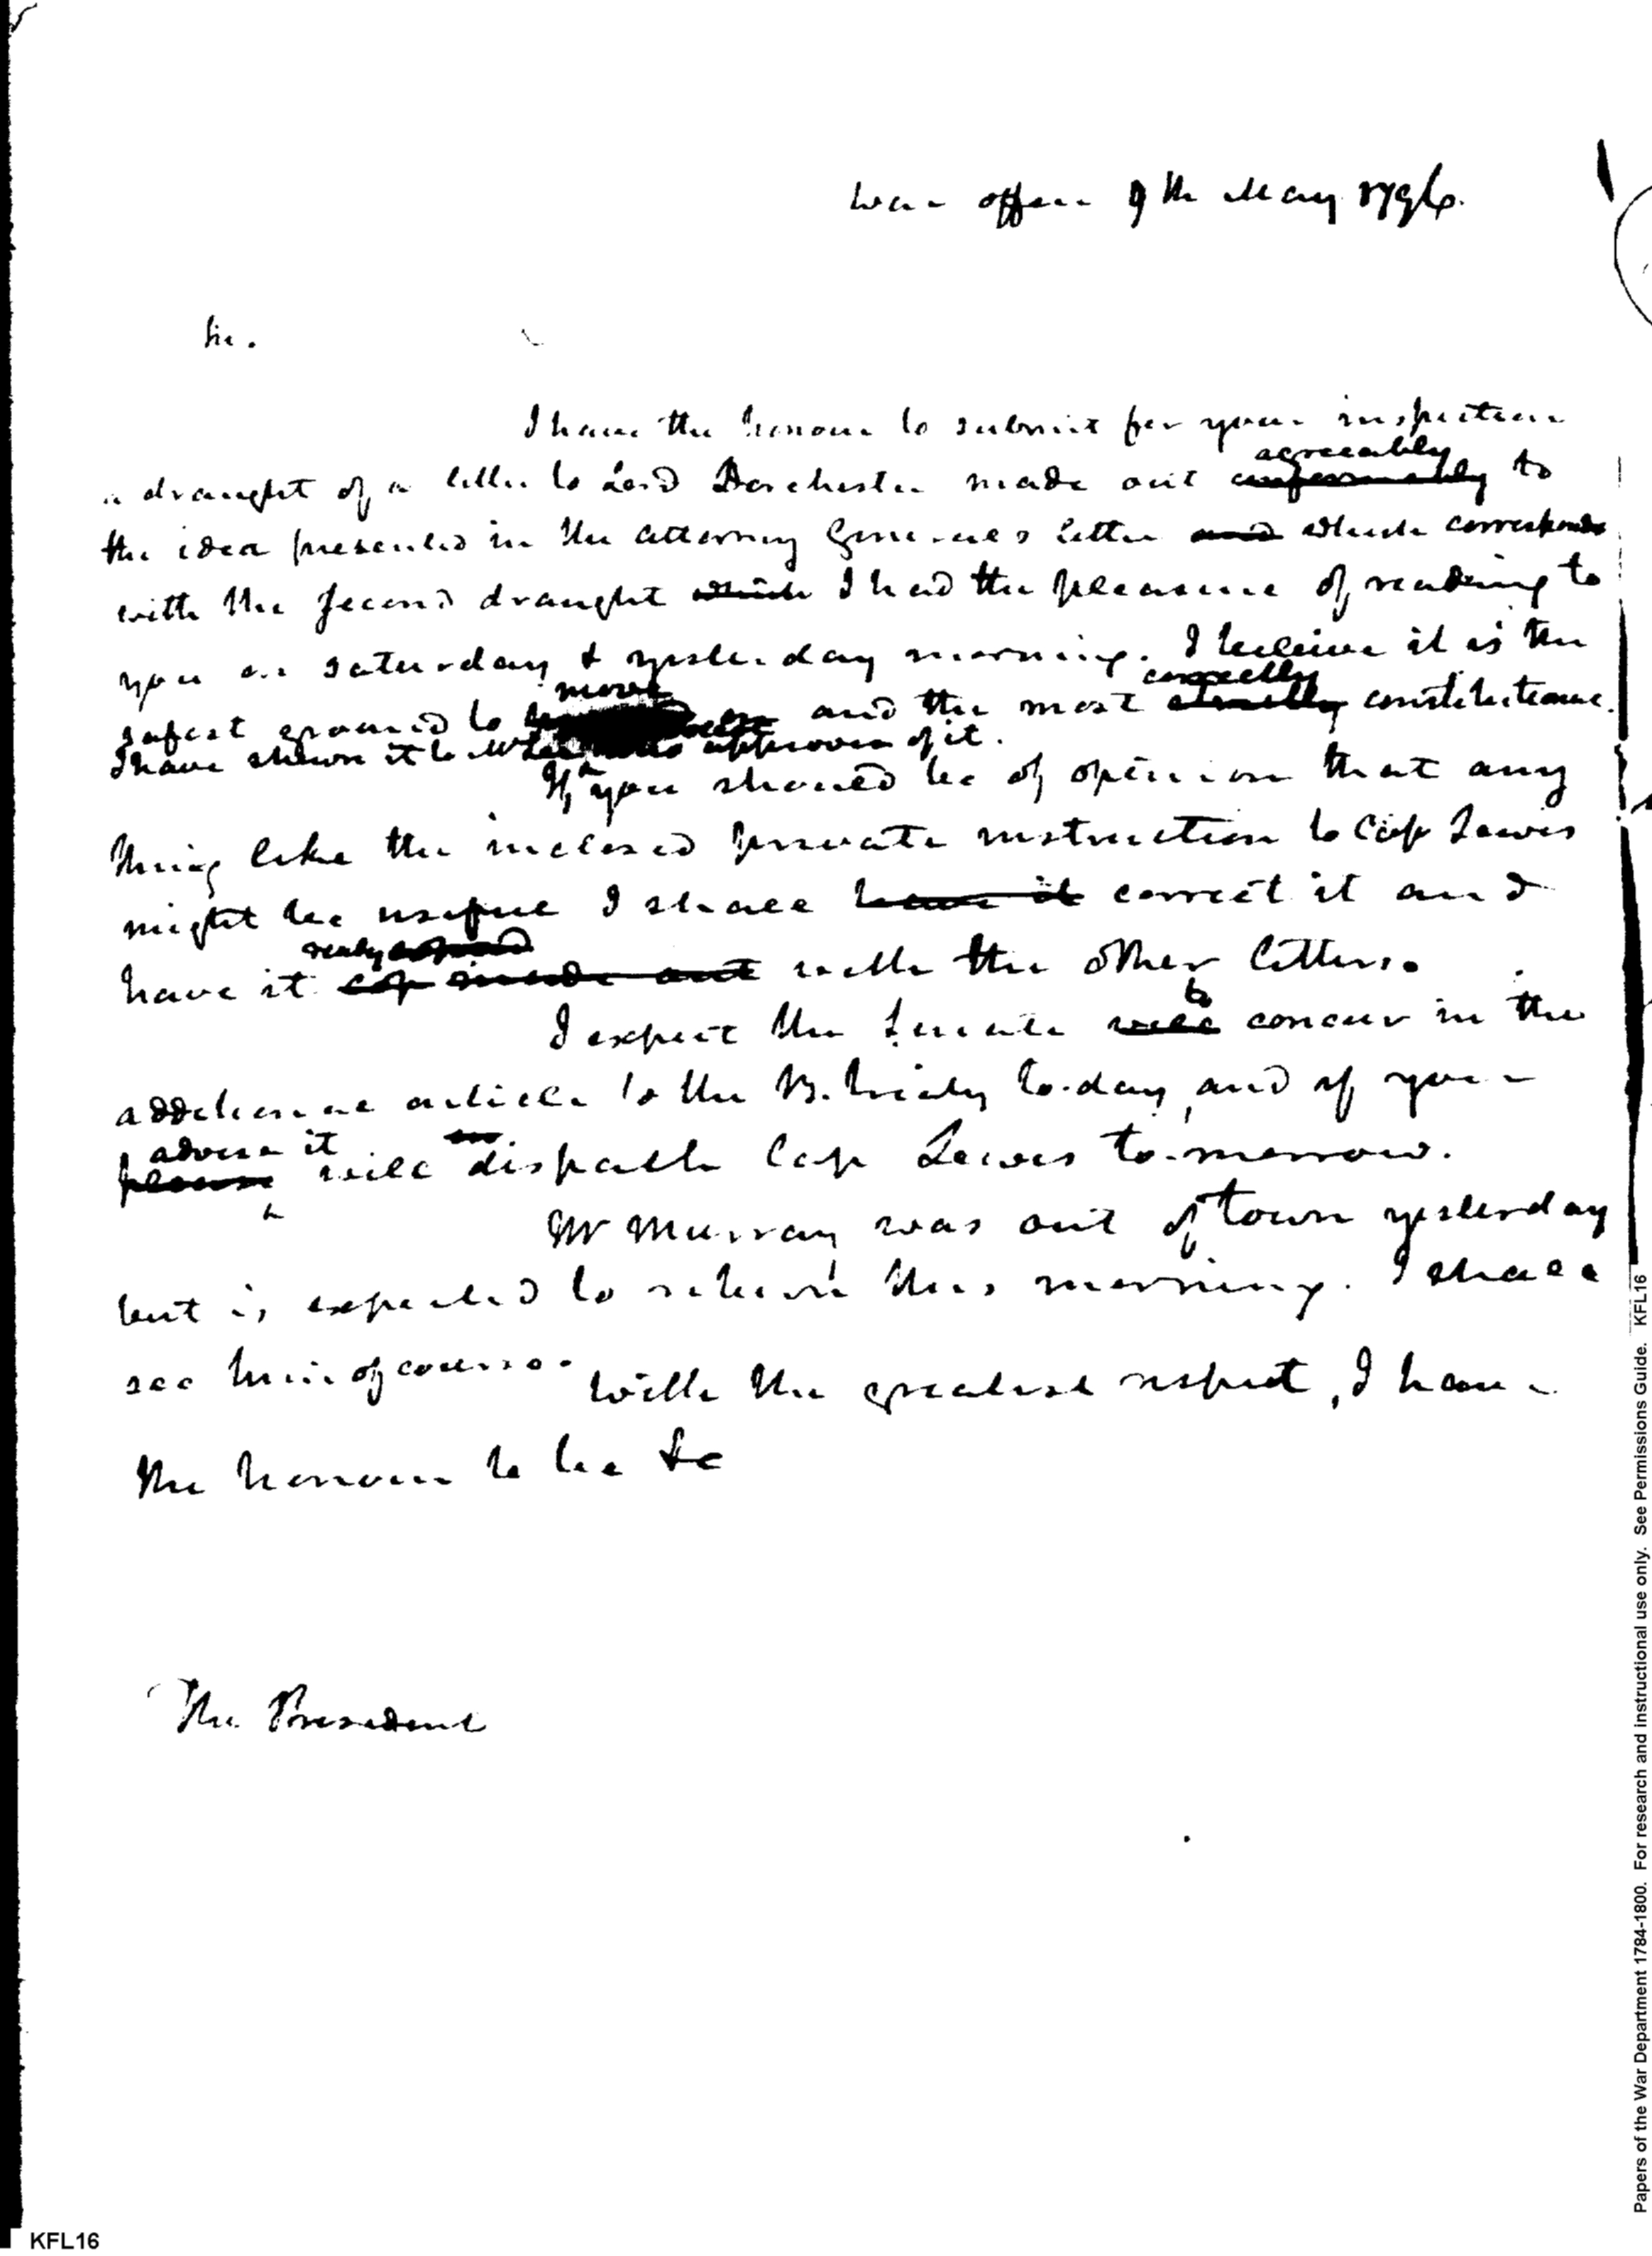 War office 9th May 1796.
Sir.
I have the honour to submit for your inspection
a draught of a letter to Lord Dorchester made out conformably agreeably to
the idea presented in the attorney Generals letter and which corresponds
with the second draught which I had the pleasure of reading to
you on saturday & yesterday morning. I believe it is the
safest ground to move on and the most strictly correctly constitutional.
I have shewn it to approves of it.
If you should be of opinion that any
thing like the inclosed private instruction to Cap Lewis
might be useful I shall have it correct it and
have it cop made out ready copied with the other letters.
I expect the Senate will to concur in the
additional article to the B. treaty to-day, and if you
please advise it will dispatch Cap Lewis to-morrow.
Mr Murray was out of town yesterday
but is expected to return this morning. I shall
see him of course. With the greatest respect, I have
the honour to be &c
The President
KFL16
Papers of the War Department 1784-1800. For research and instructional use only. See Permissions Guide. KFL16